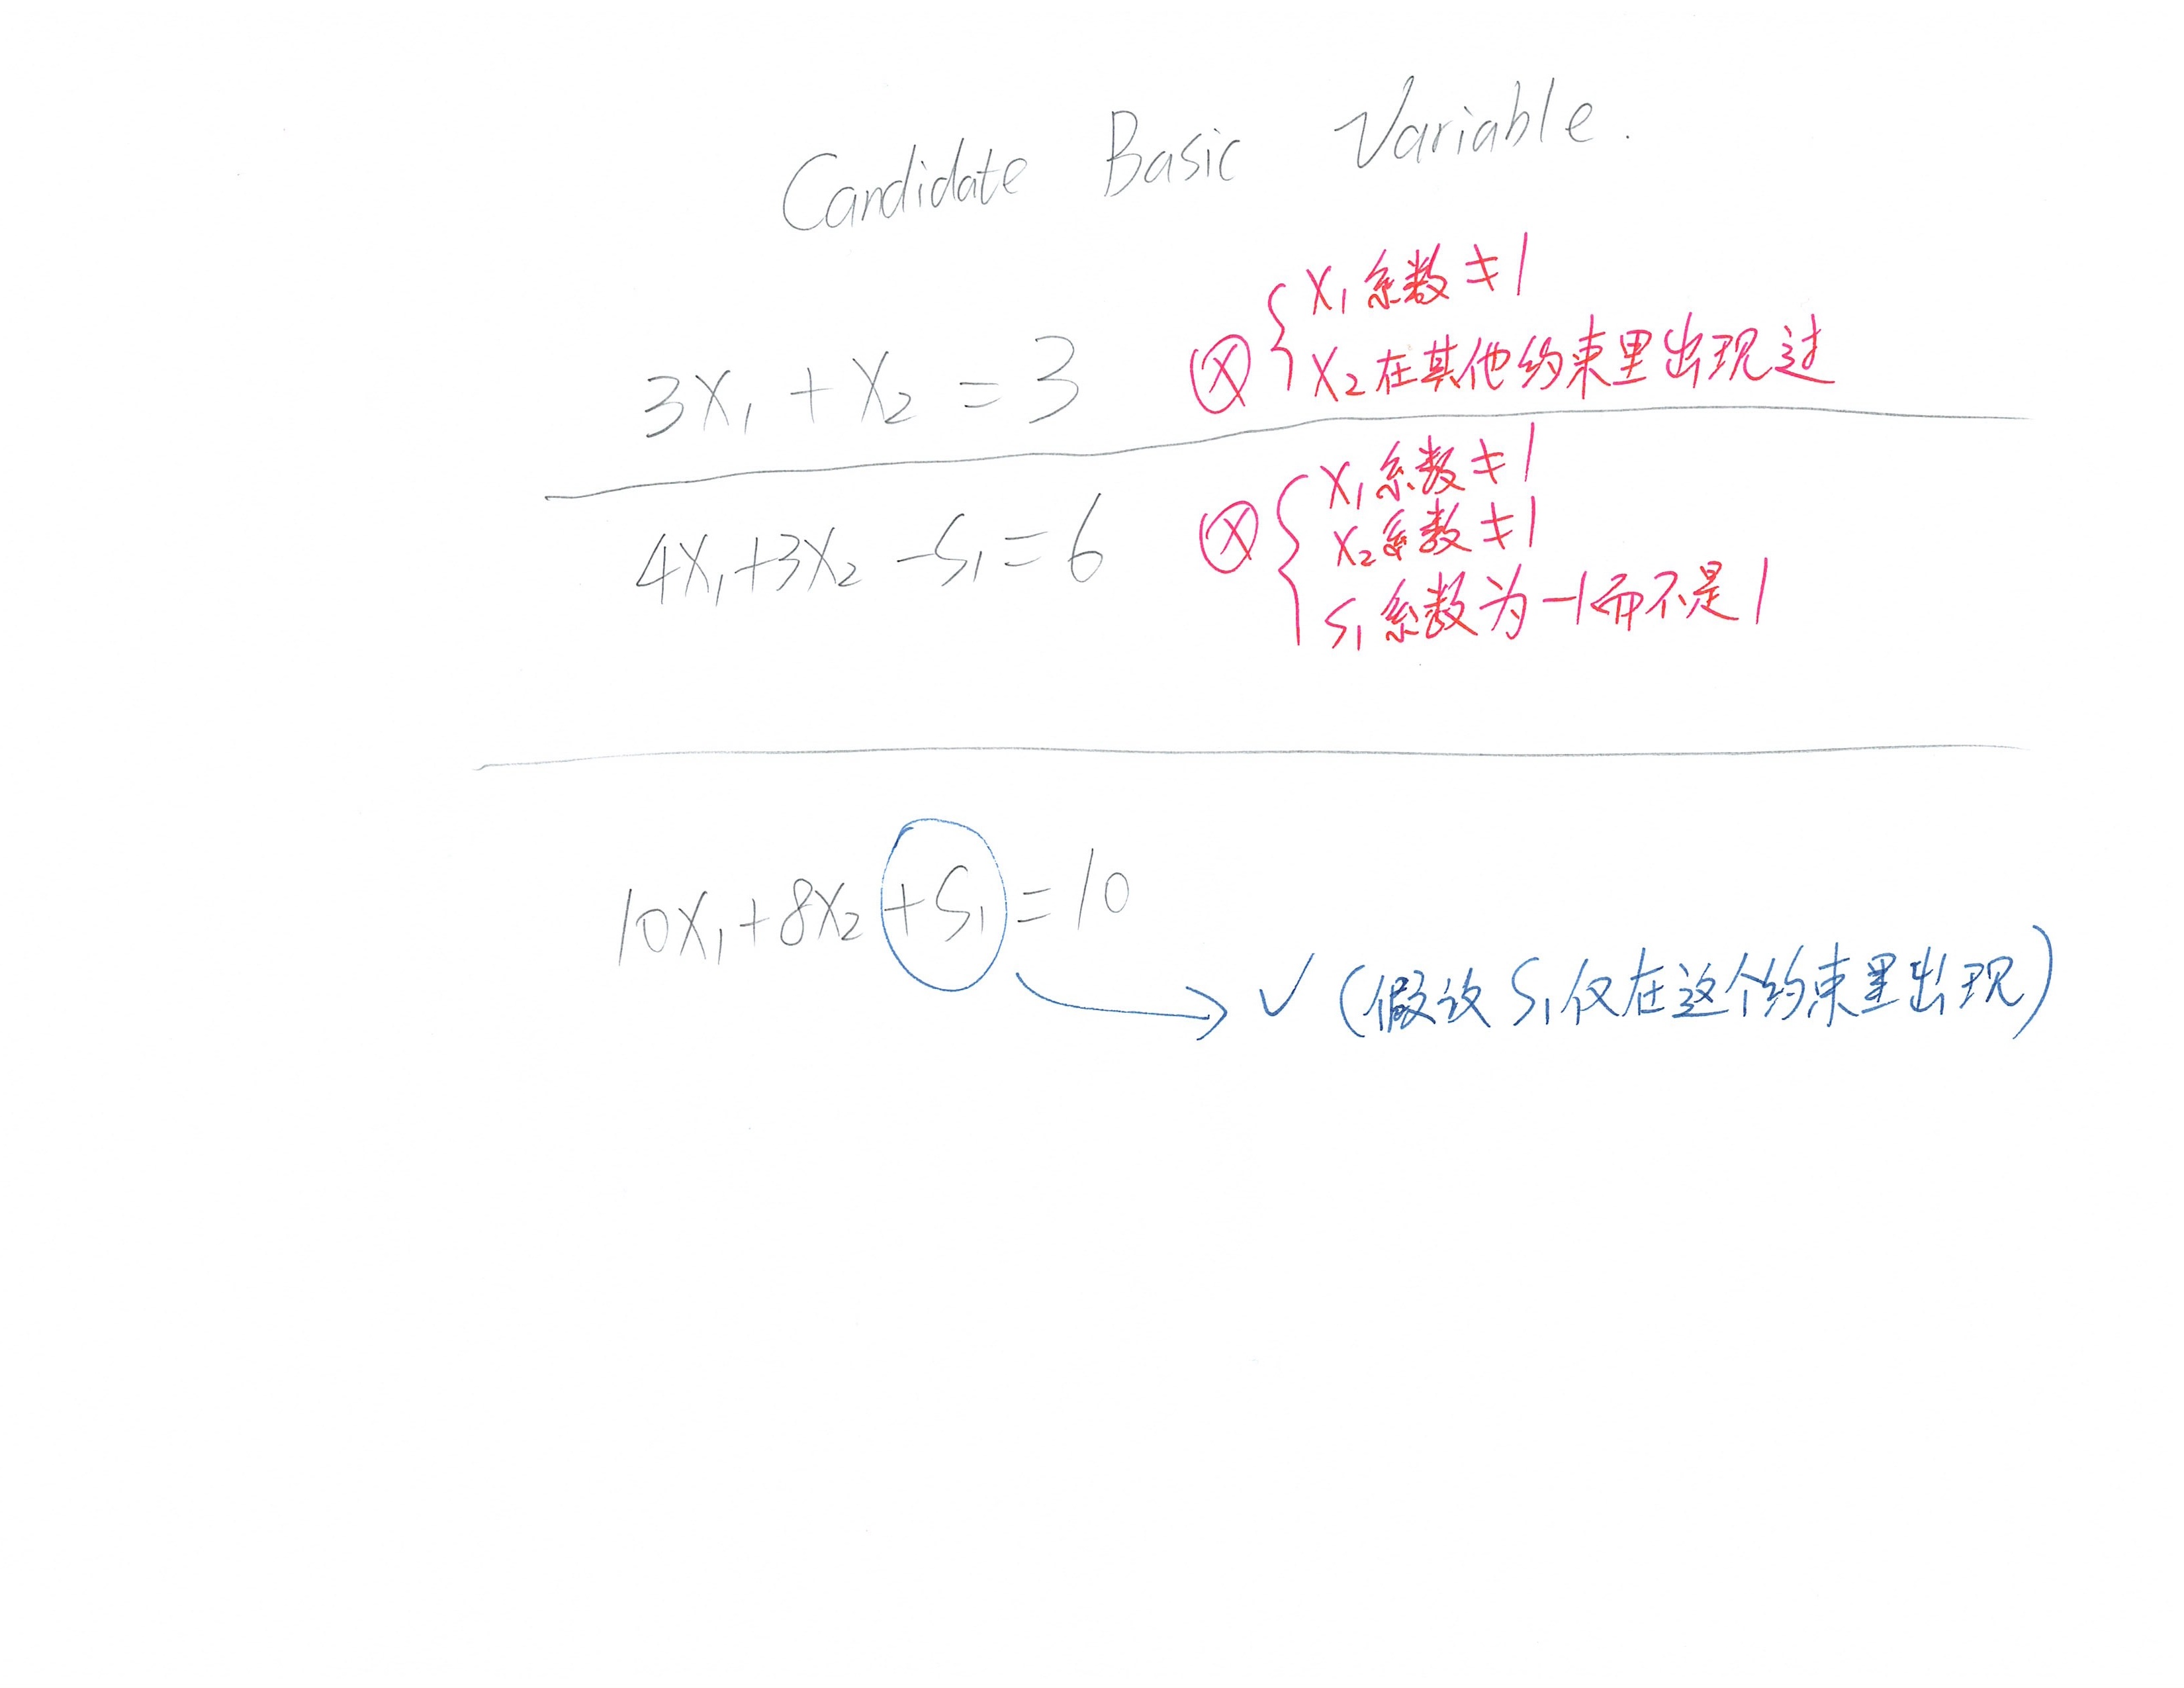 Candidate Basic Variable.
3X₁ + X₂ = 3
ⓧ { X₁系数≠1
X₂在其他约束里出现过
4X₁+3X₂-S₁=6
ⓧ { X₁系数≠1
X₂系数≠1
S₁系数为-1而不是1
10X₁+8X₂+S₁=10
→ ✓ (假设S₁仅在这个约束里出现)